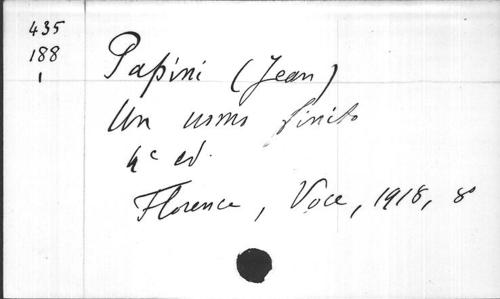 435
188
1
Papini (Jean)
Un uomo finito
4e ed.
Florence, Voce, 1918, 8°